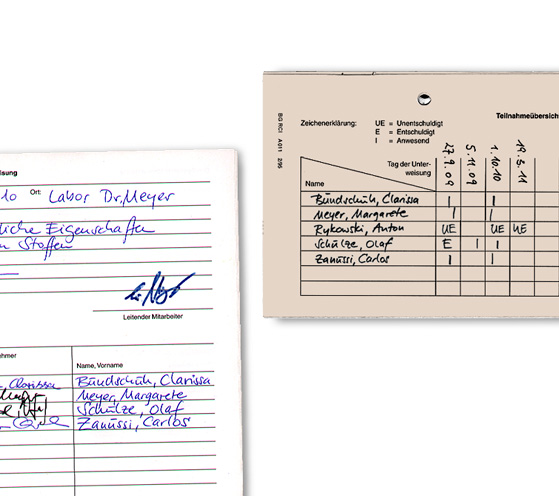 isung
10 Ort: Labor Dr. Meyer
liche Eigenschaften
n Stoffen
Leitender Mitarbeiter
ehmer Name, Vorname
, Clarissa Bundschuh, Clarissa
Meyer, Margarete
Schulze, Olaf
Zanussi, Carlos
BG RCI A 011 2/95
Teilnahmeübersich
Zeichenerklärung: UE = Unentschuldigt
E = Entschuldigt
I = Anwesend
Tag der Unter-
weisung
27.9.09 5.11.09 1.10.10 19.5.11
Name
Bundschuh, Clarissa I I
Meyer, Margarete I I
Rykowski, Anton UE UE UE
Schulze, Olaf E I I
Zanussi, Carlos I I